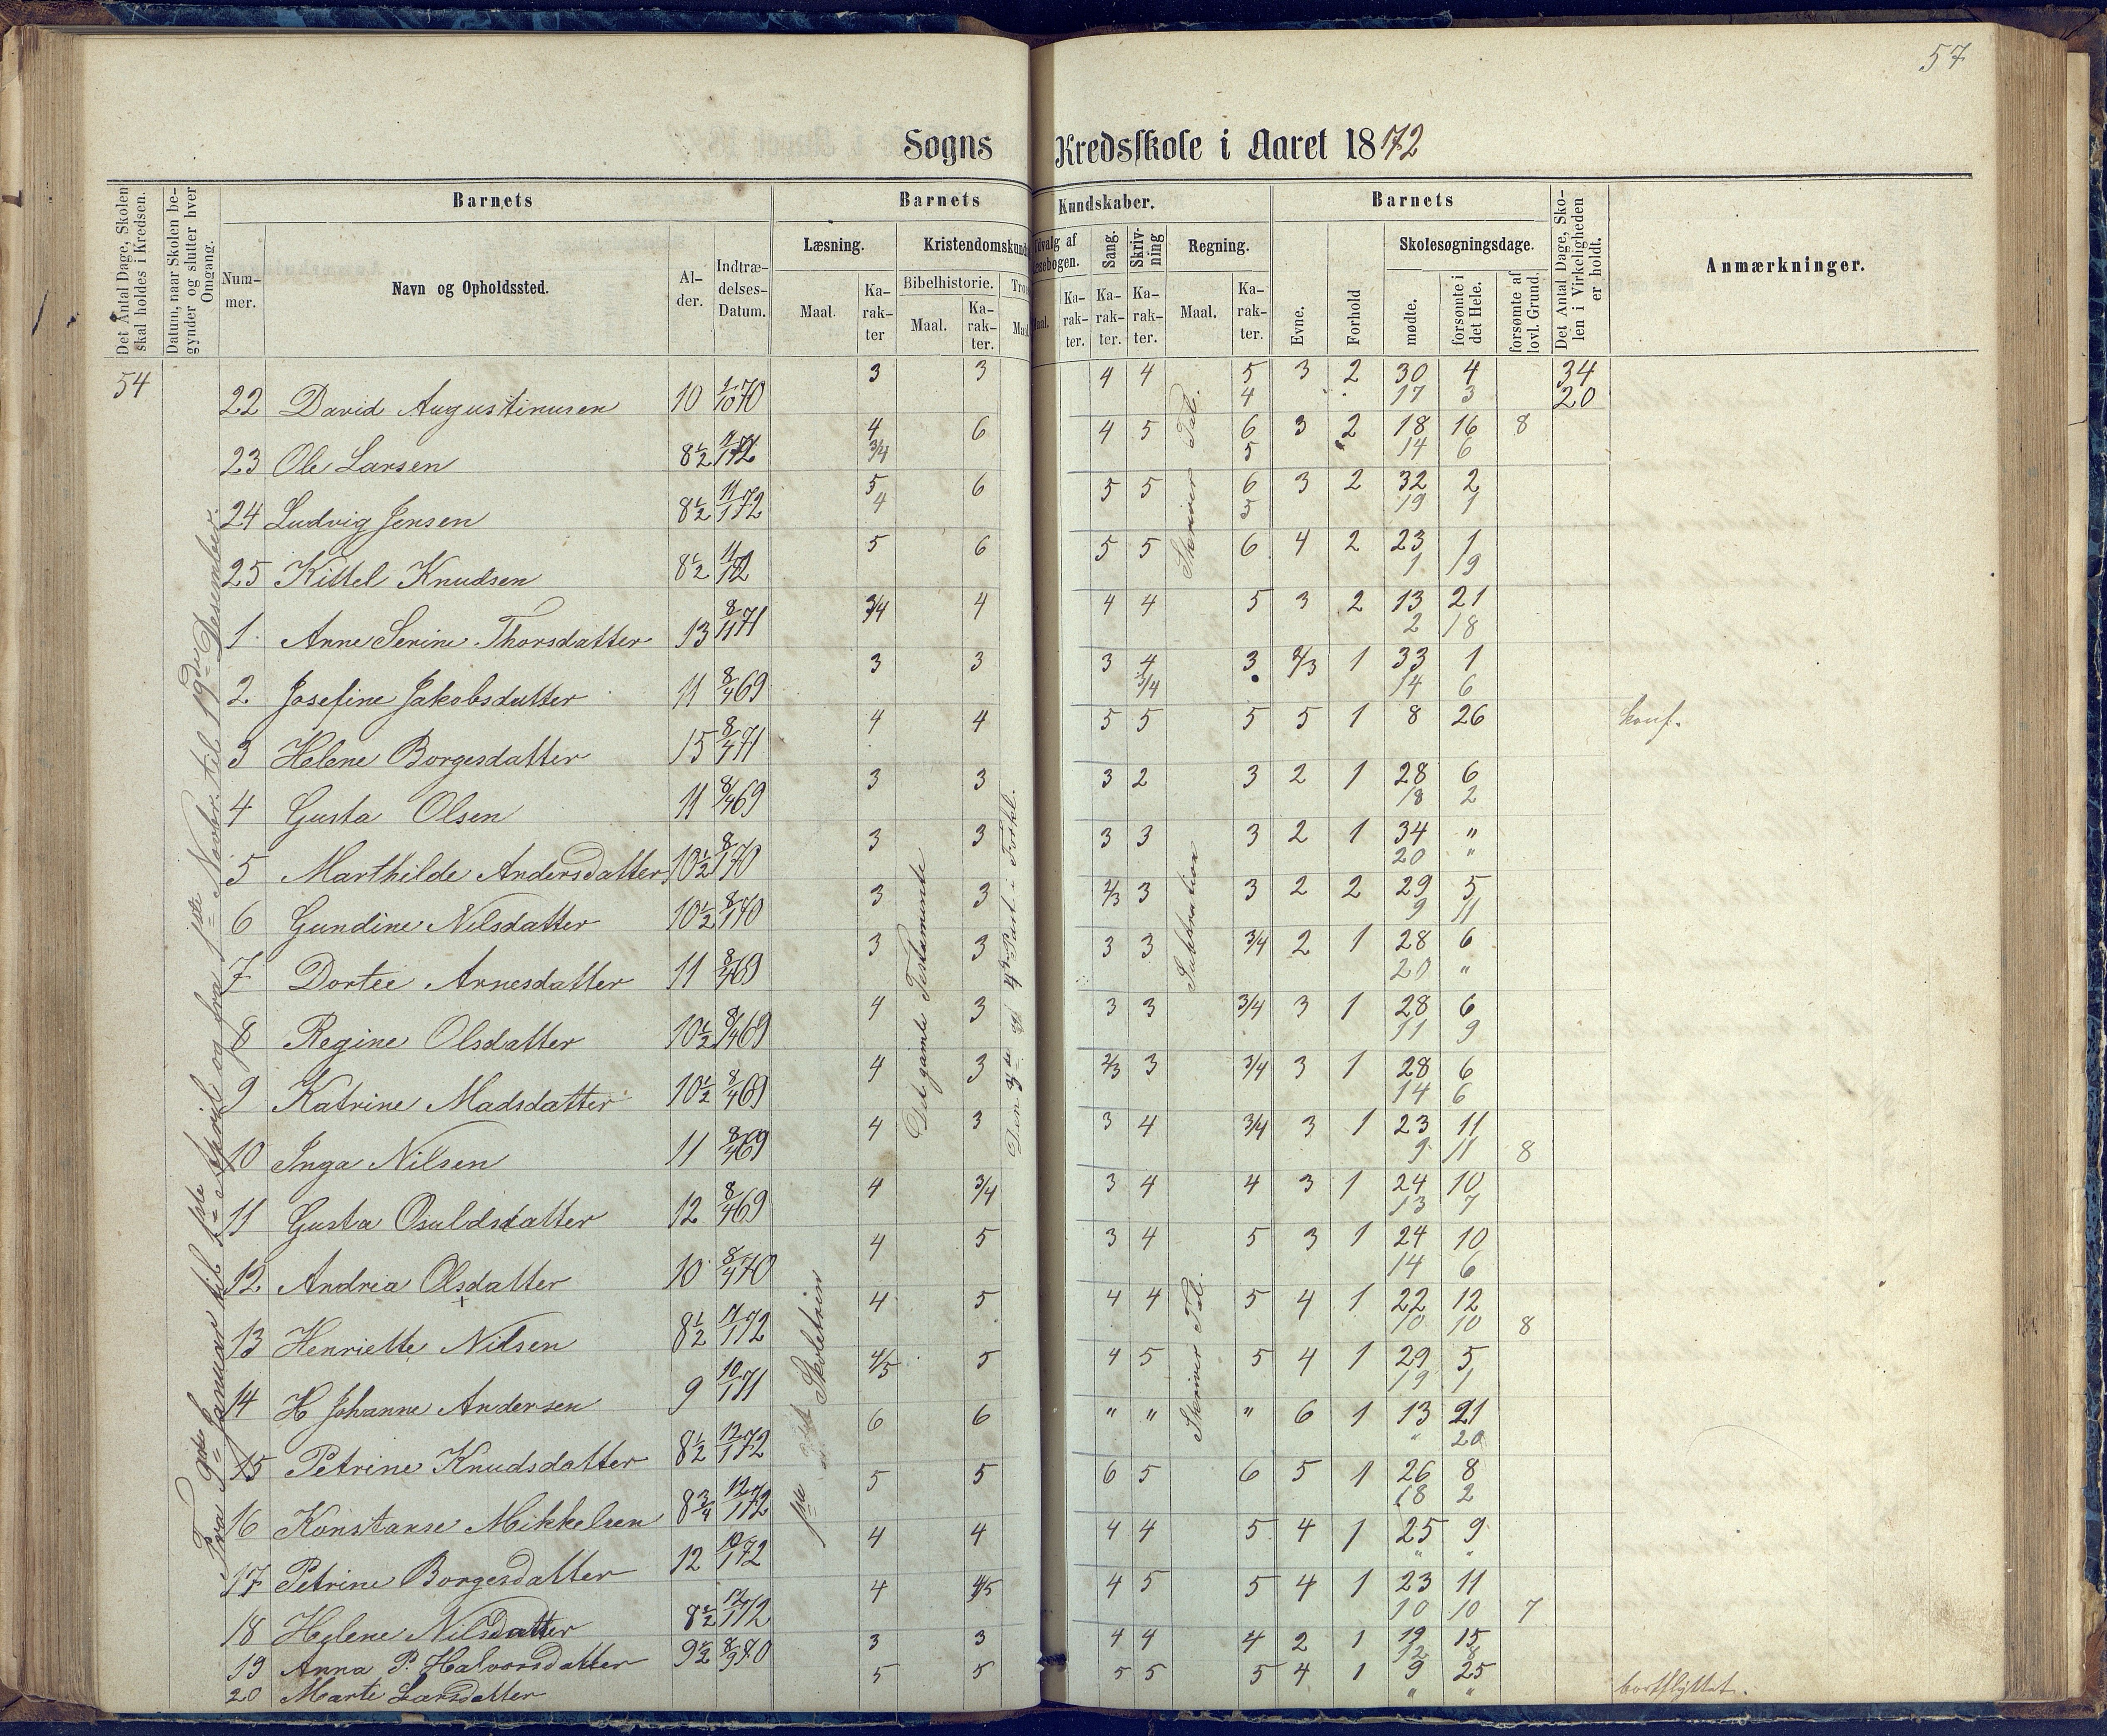 57
Sogns Kredsskole i Aaret 1872
Det Antal Dage, Skolen skal holdes i Kredsen.
Datum, naar Skolen begynder og slutter hver Omgang.
Barnets
Nummer.
Navn og Opholdssted.
Alder.
Indtrædelses-Datum.
Barnets Kundskaber.
Læsning.
Maal.
Karakter
Kristendomskund
Bibelhistorie.
Maal.
Karakter.
Troe
Maal
Udvalg af Læsebogen.
Maal.
Karakter.
Sang.
Karakter.
Skrivning
Karakter.
Regning.
Maal.
Karakter.
Barnets
Evne.
Forhold
Skolesøgningsdage.
mødte.
forsømte i det Hele.
forsømte af lovl. Grund.
Det Antal Dage, Skolen i Virkeligheden er holdt.
Anmærkninger.
54
Fra 9de Januar til 1ste April og fra 1ste Novber. til 19de Desember.
1ste Skoletrin
Det gamle Testamente
Den 3die og 4de Part i Forkl.
Skriver Tal.
Subtration
Skriver Tal.
22 David Augustinusen 10 1/10 70 3 3 4 4 5 3 2 30 4 34
4 17 3 20
23 Ole Larsen 8½ 11/1 72 4 6 4 5 6 3 2 18 16 8
3/4 5 14 6
24 Ludvig Jensen 8½ 11/1 72 5 6 5 5 6 3 2 32 2
4 5 19 1
25 Kittel Knudsen 8½ 11/1 72 5 6 5 5 6 4 2 23 1
1 19
1 Anne Serine Thorsdatter 13 8/11 71 3/4 4 4 4 5 3 2 13 21
2 18
2 Josefine Jakobsdatter 11 8/4 69 3 3 3 4 3 2/3 1 33 1
3/4 14 6
3 Helene Borgesdatter 15 8/4 71 4 4 5 5 5 5 1 8 26 konf.
4 Gusta Olsen 11 8/4 69 3 3 3 2 3 2 1 28 6
18 2
5 Marthilde Andersdatter 10½ 8/1 70 3 3 3 3 3 2 1 34 "
20 "
6 Gundine Nilsdatter 10½ 8/1 70 3 3 2/3 3 3 2 2 29 5
9 11
7 Dortee Arnesdatter 11 8/4 69 3 3 3 3 3/4 2 1 28 6
20 "
8 Regine Olsdatter 10½ 8/4 69 4 3 3 3 3/4 3 1 28 6
11 9
9 Katrine Madsdatter 10½ 8/4 69 4 3 2/3 3 3/4 3 1 28 6
14 6
10 Inga Nilsen 11 8/4 69 4 3 3 4 3/4 3 1 23 11
9 11 8
11 Gusta Osuldsdatter 12 8/4 69 4 3/4 3 4 4 3 1 24 10
13 7
12 Andrea Olsdatter 10 8/4 70 4 5 3 4 5 3 1 24 10
14 6
13 Henriette Nilsen 8½ 11/1 72 4 5 4 4 5 4 1 22 12
10 10 8
14 H Johanne Andersen 9 10/1 71 4/5 5 4 5 5 4 1 29 5
19 1
15 Petrine Knudsdatter 8½ 12/1 72 6 6 " " " 6 1 13 21
" 20
16 Konstanse Mikkelsen 8¾ 12/1 72 5 5 6 5 6 5 1 26 8
18 2
17 Petrine Borgesdatter 12 10/1 72 4 4 4 4 5 4 1 25 9
" "
18 Helene Nilsdatter 8½ 12/1 72 4 4/5 4 5 5 4 1 23 11
10 10 7
19 Anna P. Halvorsdatter 9½ 8/9 70 3 3 4 4 4 2 1 19 15
12 8
20 Marte Larsdatter 5 5 5 5 5 4 1 9 25 bortflyttet.
" "